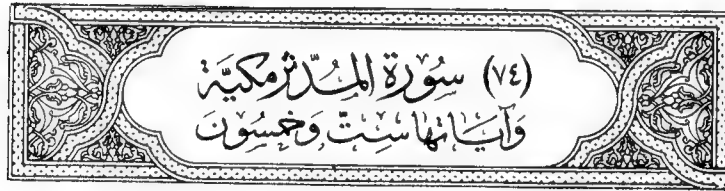 (٧٤) سُورَة المُدَّثِّر مَكيَّة
وَآيَاتهَا سِتّ وَخَمسُونَ